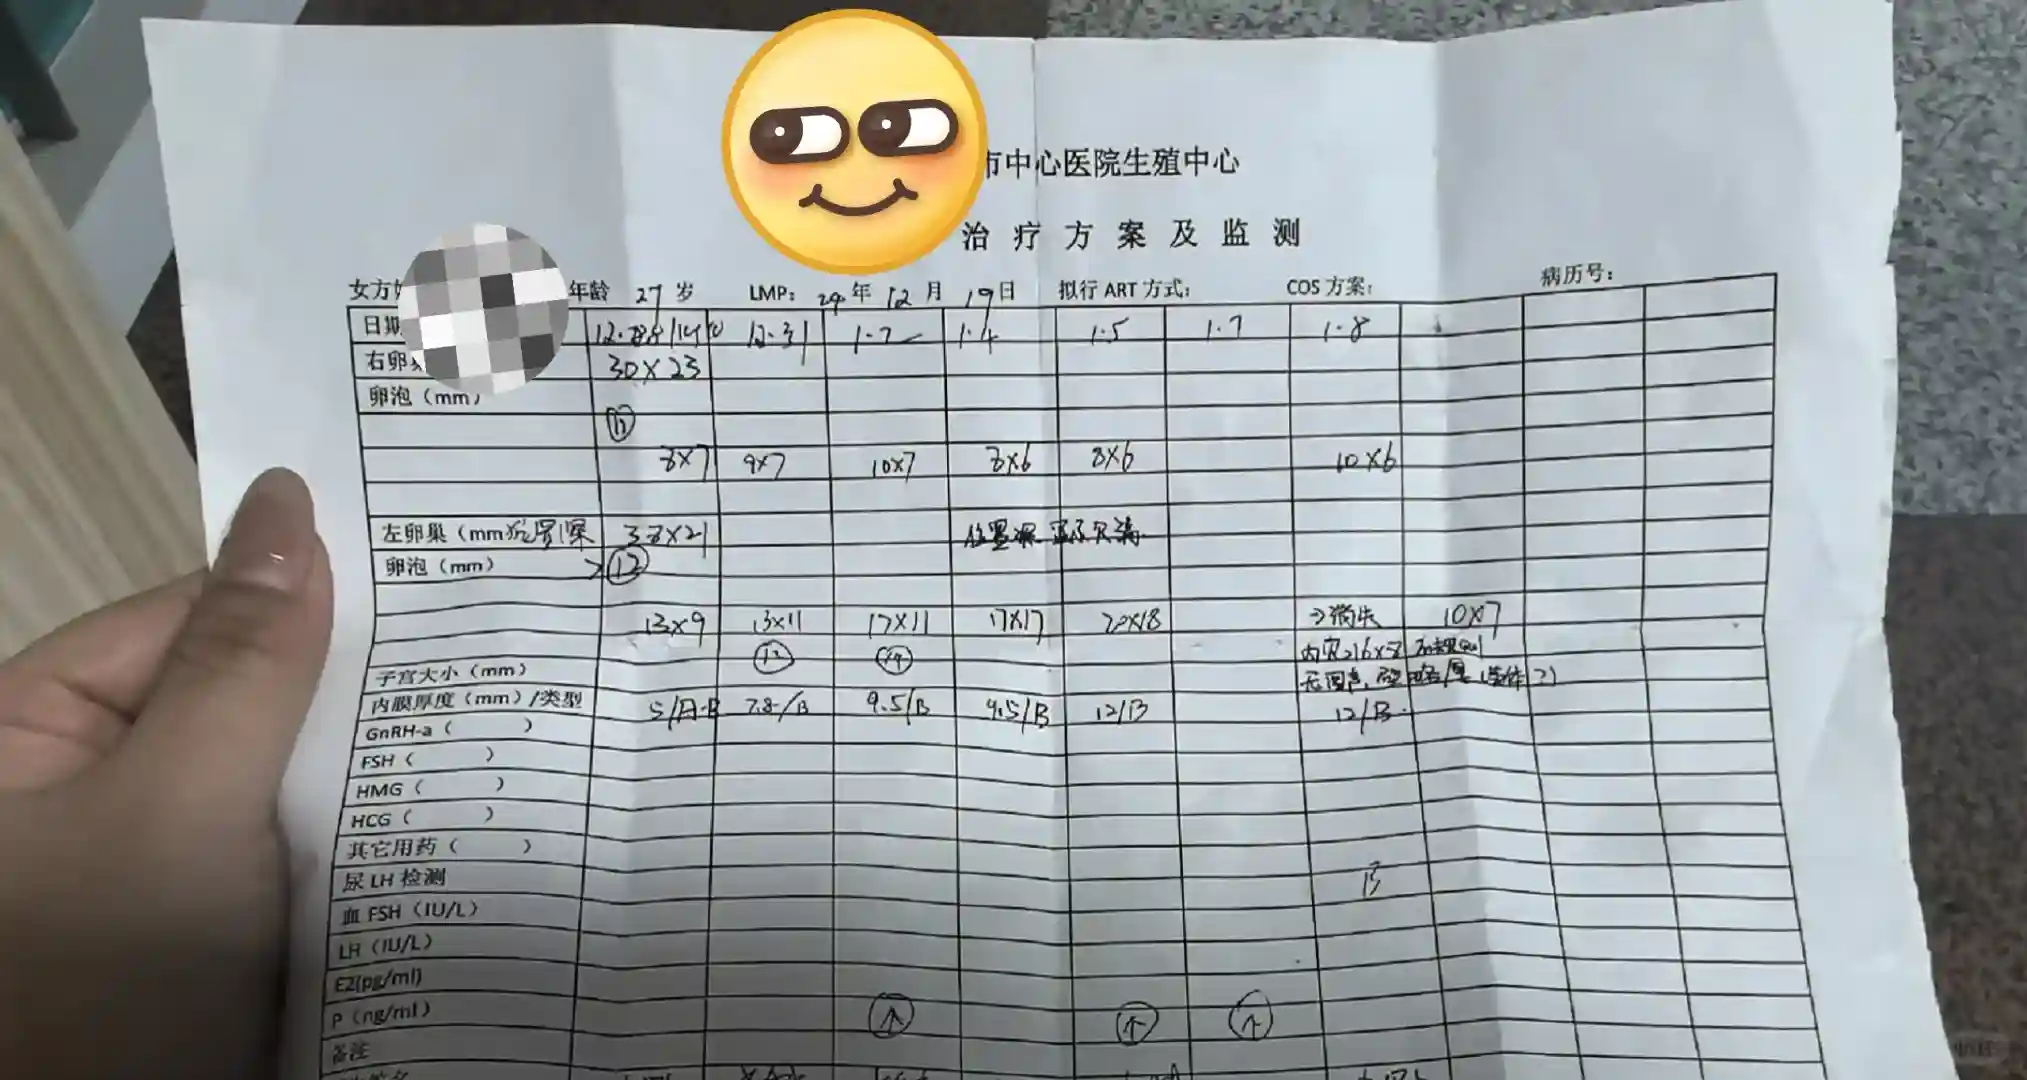 市中心医院生殖中心
治疗方案及监测
女方 年龄 27 岁 LMP: 24 年 12 月 19 日 拟行 ART 方式: COS 方案: 病历号:
日期 12.31 1.2 1.4 1.5 1.7 1.8
右卵 30×23
卵泡（mm）
8×7 9×7 10×7 8×6 8×6 10×6
左卵巢（mm 38×21 位置深 显示欠清
卵泡（mm） >12
13×9 13×11 17×11 17×17 20×18 →消失 10×7
12
子宫大小（mm）
内膜厚度（mm）/类型 5/A-B 7.8/B 9.5/B 9.5/B 12/B 12/B
GnRH-a（ ）
FSH（ ）
HMG（ ）
HCG（ ）
其它用药（ ）
尿 LH 检测
血 FSH（IU/L）
LH（IU/L）
E2(pg/ml)
P（ng/ml） ↑ ↑ ↑
备注